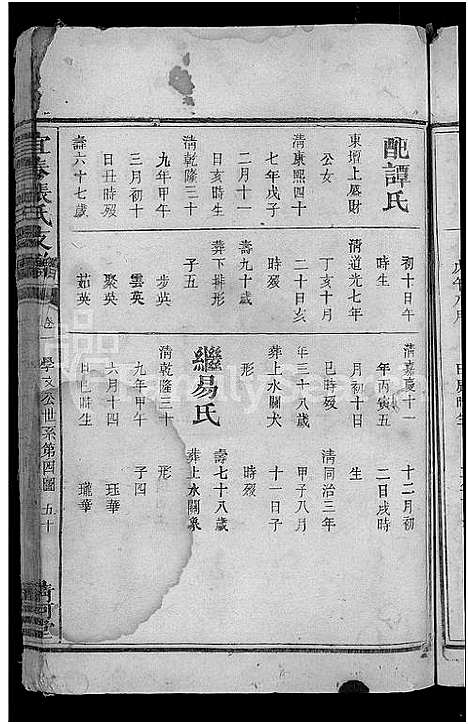 配譚氏
東壇上盛財
公女
清康熙四十
七年戊子
二月十一
日亥時生
清乾隆三十
九年甲午
三月初十
日丑時殁
壽六十七歲
初十日午
時生
清道光七年
丁亥十月
二十日亥
時殁
壽九十歲
葬下排形
子五
步英
雲英
聚英
茹英
清嘉慶十一
年丙寅五
月初十日
巳時殁
年三十八歲
葬上水關犬
形
繼易氏
清乾隆三十
九年甲午
六月十四
日巳時生
十二月初
二日戌時
生
清同治三年
甲子八月
十一日子
時殁
壽七十八歲
葬上水關象
形
子四
珏華
瓏華
宜春張氏支譜
卷一
學文公世系第四圖
五十
清河堂
FamilySearch